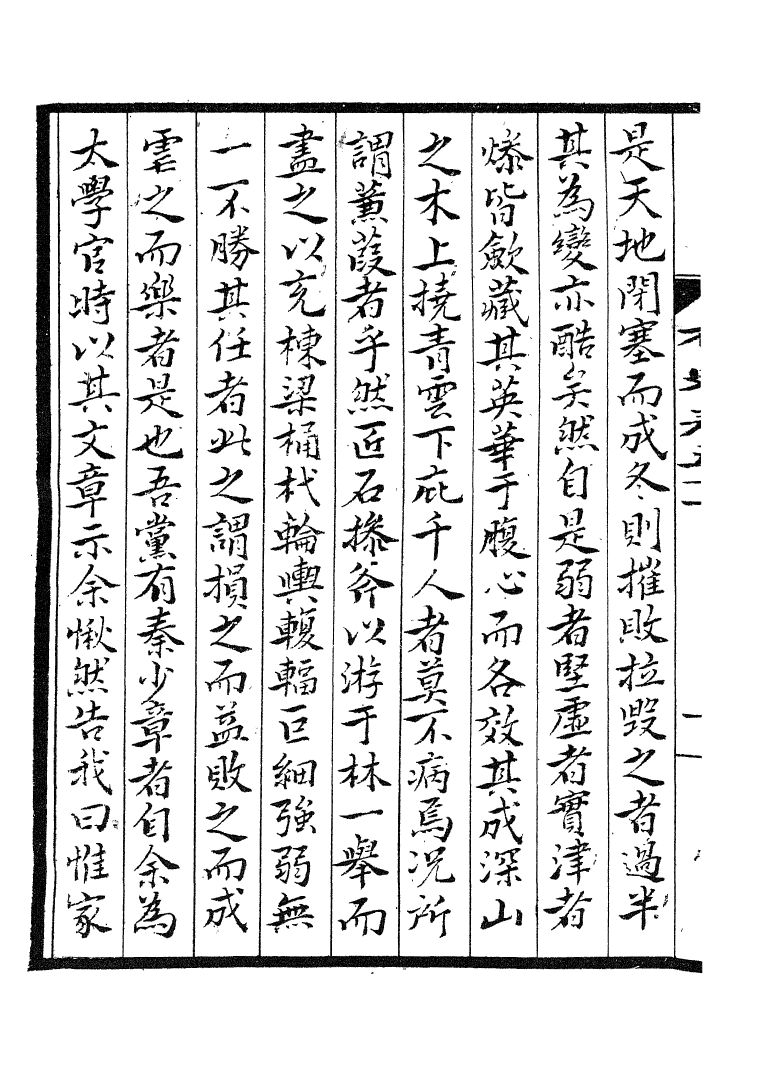 是天地閉塞而成冬則摧敗拉毀之者過半
其為變亦酷矣然自是弱者堅虛者實津者
燥皆歛藏其英華于腹心而各效其成深山
之木上撓青雲下庇千人者莫不病焉况所
謂蒹葭者乎然匠石摻斧以游于林一舉而
盡之以充棟梁桷杙輪輿輹輻巨細强弱無
一不勝其任者此之謂損之而益敗之而成
虐之而樂者是也吾黨有秦少章者自余為
太學官時以其文章示余愀然告我曰惟家